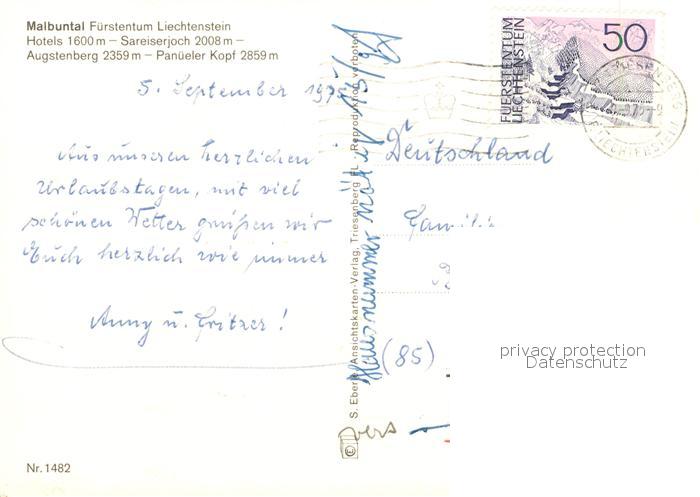 Malbuntal Fürstentum Liechtenstein
Hotels 1600 m – Sareiserjoch 2008 m –
Augstenberg 2359 m – Panüeler Kopf 2859 m
5. September 197
Aus unseren herzlichen
Urlaubstagen, mit viel
schönen Wetter grüßen wir
Euch herzlich wie immer
Anny u. Fritzer!
Nr. 1482
© S. Eberle, Ansichtskarten-Verlag, Triesenberg FL · Reproduktion verboten
Hausnummer nötig
(85)
FUERSTENTUM
LIECHTENSTEIN
50
Deutschland
Familie
privacy protection
Datenschutz